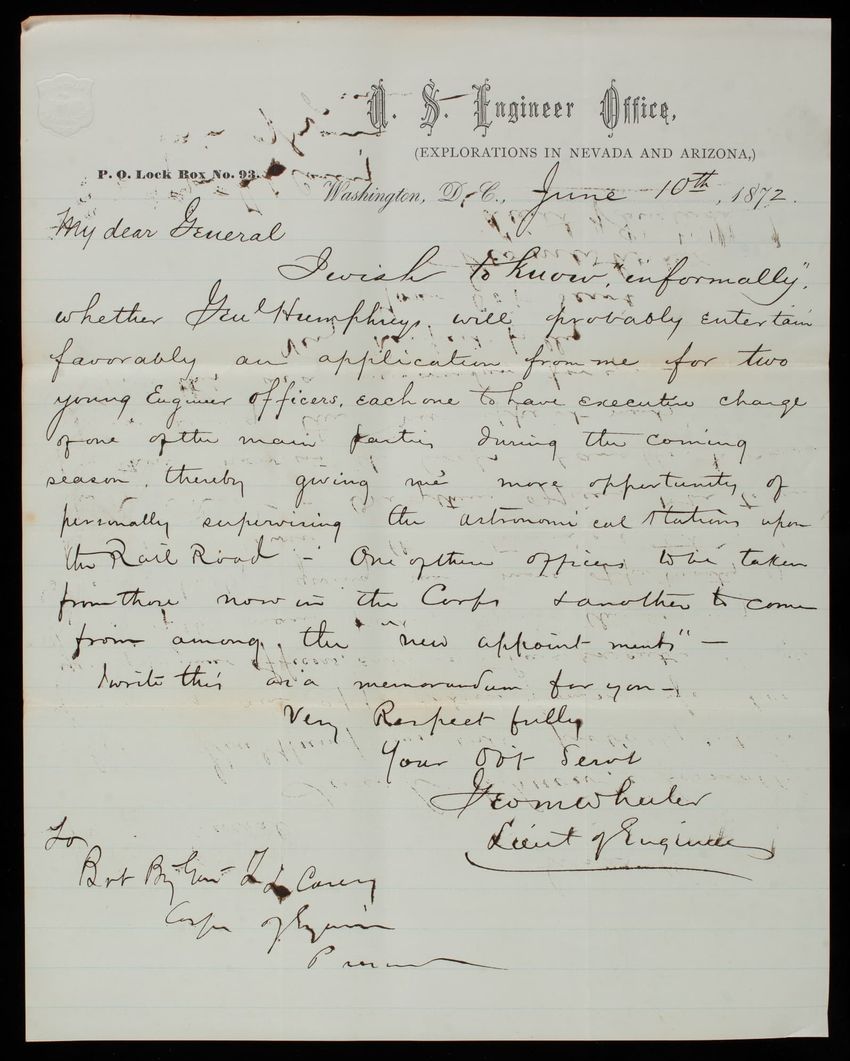 U. S. Engineer Office,
(EXPLORATIONS IN NEVADA AND ARIZONA,)
P. O. Lock Box No. 93.
Washington, D. C., June 10th, 1872.
My dear General
I wish to know, "informally",
whether Genl Humphreys will probably entertain
favorably an application from me for two
young Engineer officers, each one to have executive charge
of one of the main parties during the coming
season, thereby giving me more opportunity of
personally supervising the astronomical stations upon
the Rail Road - One of these officers to be taken
from those now in the Corps & another to come
from among the "new appointments" -
I write this as a memorandum for you -
Very Respectfully
Your Obt Servt
Geo M Wheeler
Lieut of Engineers
To
Bvt Brig Genl T L Casey
Corps of Engineers
Present